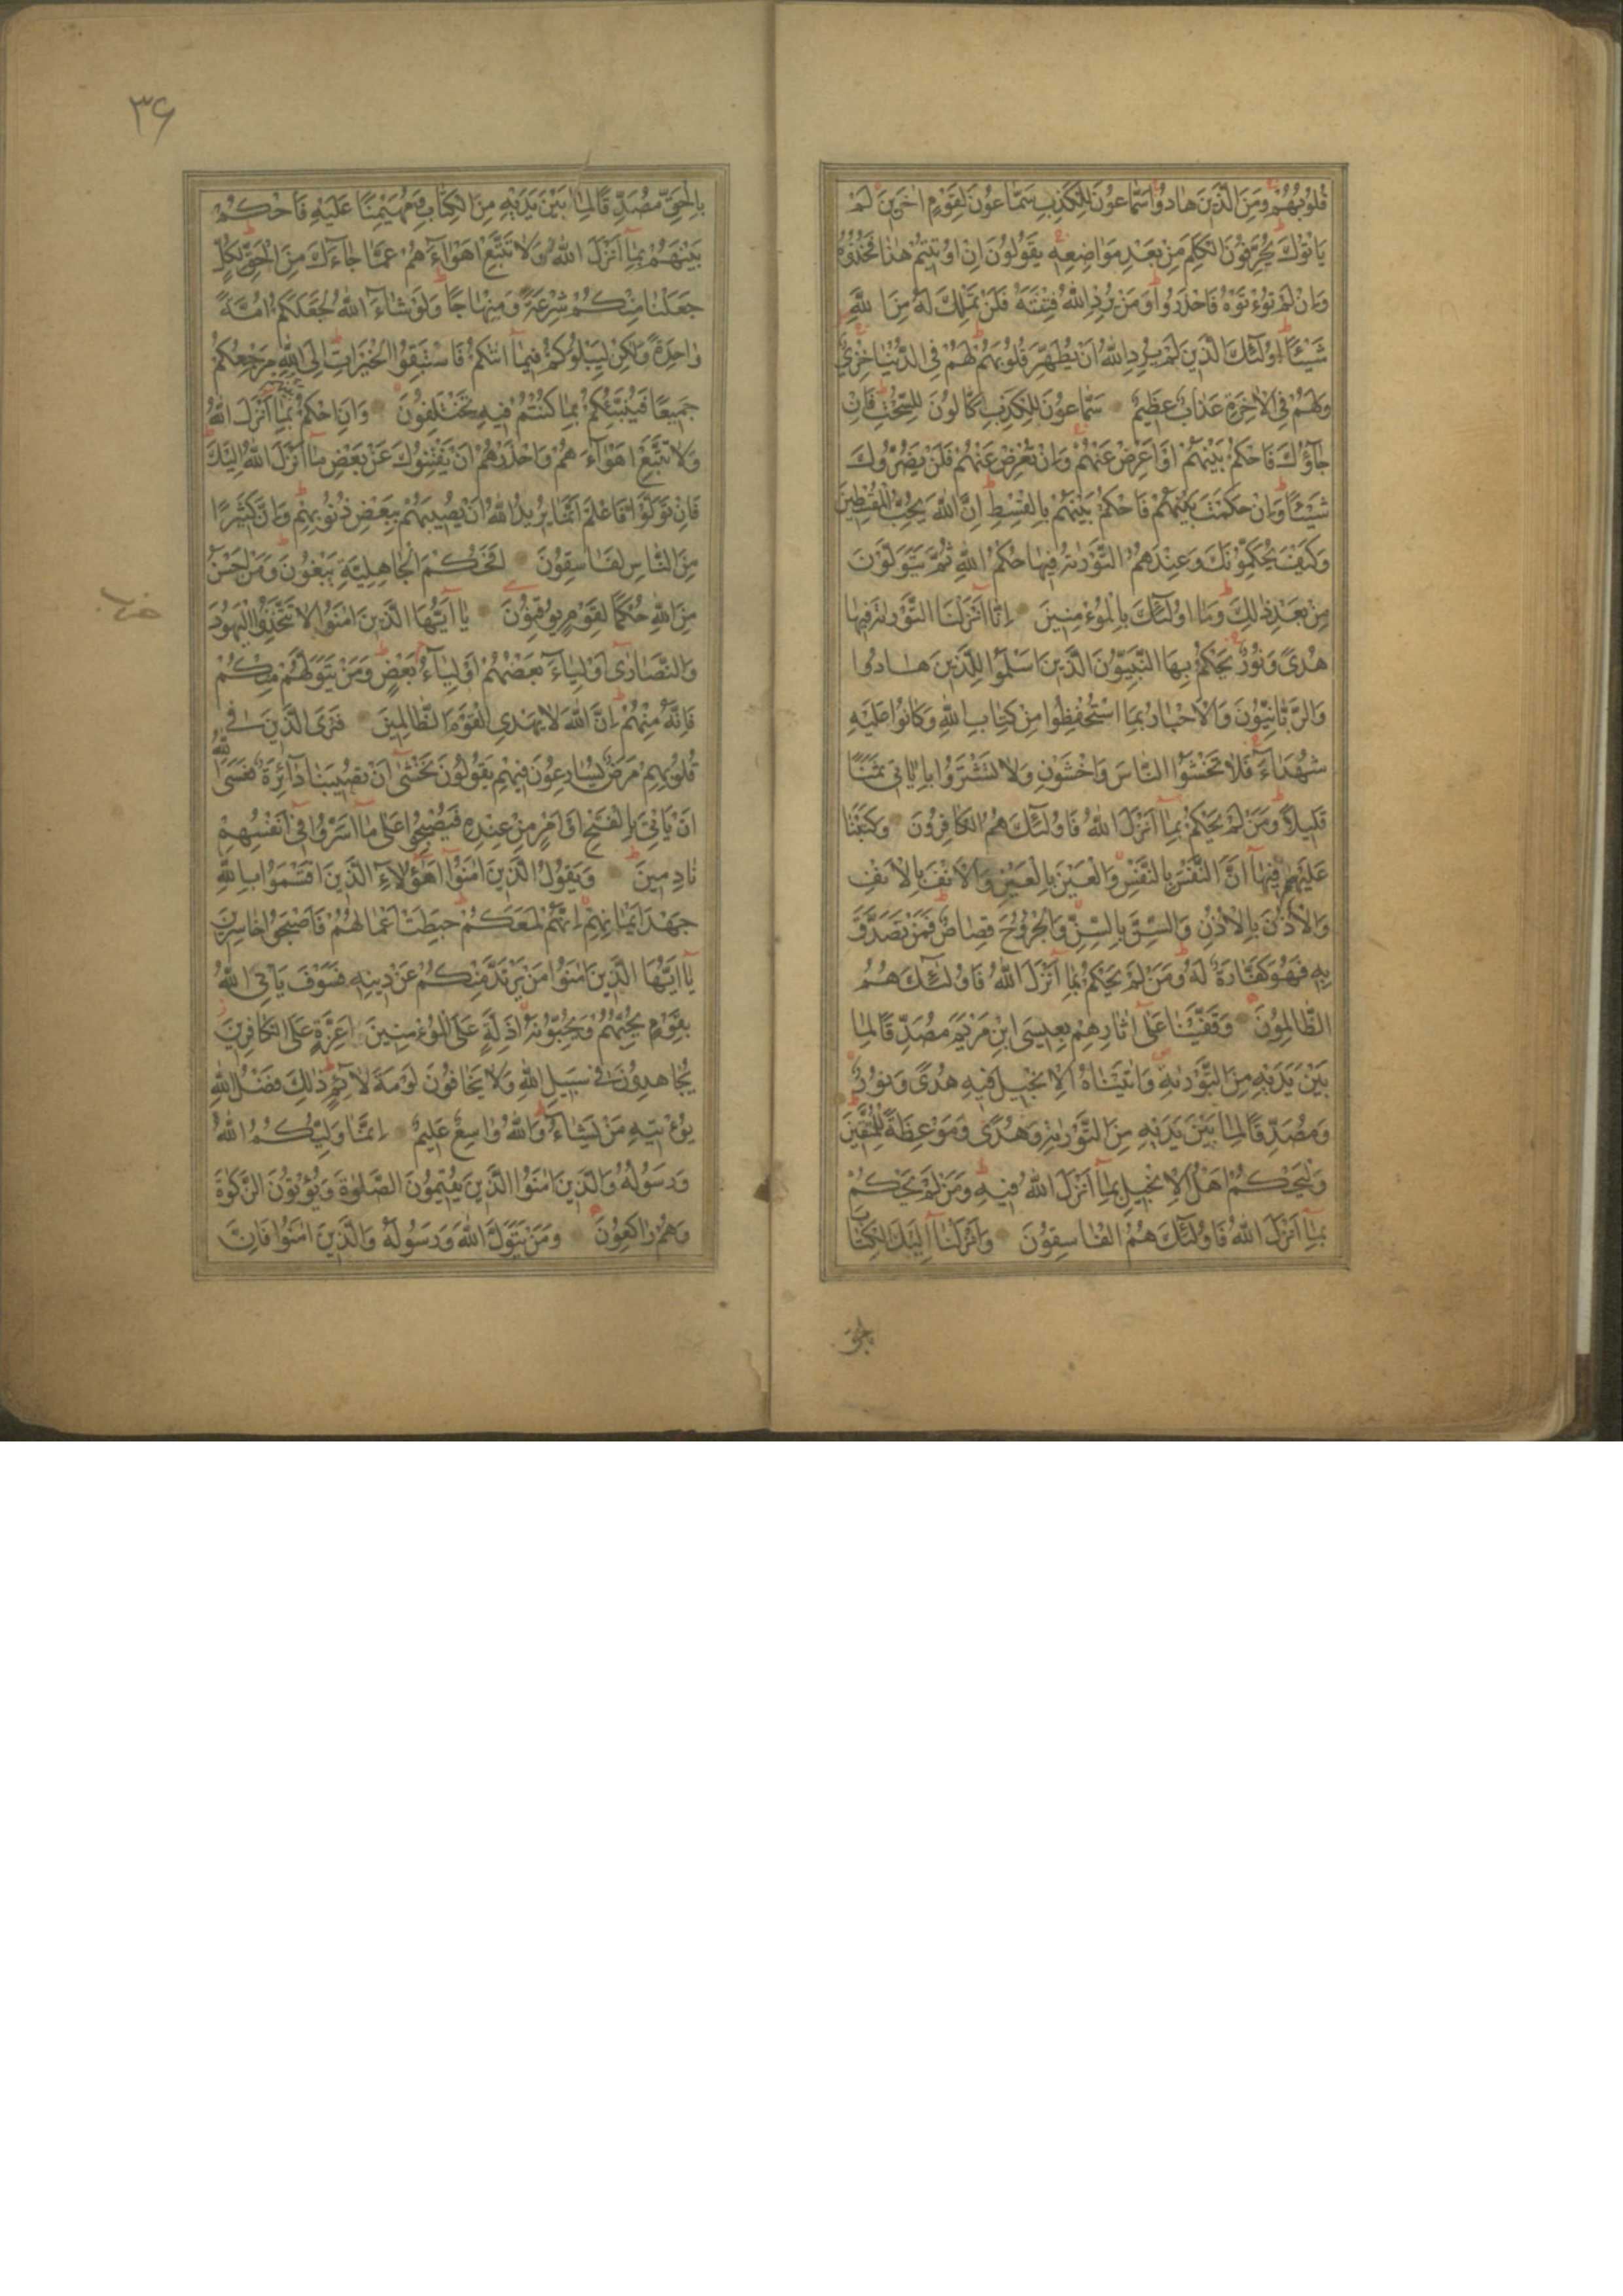 قُلُوبُهُمْ وَمِنَ الَّذِينَ هَادُوا سَمَّاعُونَ لِلْكَذِبِ سَمَّاعُونَ لِقَوْمٍ اٰخَرِينَ لَمْ
يَأْتُوكَ يُحَرِّفُونَ الْكَلِمَ مِنْ بَعْدِ مَوَاضِعِهِ يَقُولُونَ اِنْ اُوتِيتُمْ هٰذَا فَخُذُوهُ
وَاِنْ لَمْ تُؤْتَوْهُ فَاحْذَرُوا وَمَنْ يُرِدِ اللّٰهُ فِتْنَتَهُ فَلَنْ تَمْلِكَ لَهُ مِنَ اللّٰهِ
شَيْئًا اُولٰٓئِكَ الَّذِينَ لَمْ يُرِدِ اللّٰهُ اَنْ يُطَهِّرَ قُلُوبَهُمْ لَهُمْ فِي الدُّنْيَا خِزْيٌ
وَلَهُمْ فِي الْاٰخِرَةِ عَذَابٌ عَظِيمٌ سَمَّاعُونَ لِلْكَذِبِ اَكَّالُونَ لِلسُّحْتِ فَاِنْ
جَآؤُكَ فَاحْكُمْ بَيْنَهُمْ اَوْ اَعْرِضْ عَنْهُمْ وَاِنْ تُعْرِضْ عَنْهُمْ فَلَنْ يَضُرُّوكَ
شَيْئًا وَاِنْ حَكَمْتَ فَاحْكُمْ بَيْنَهُمْ بِالْقِسْطِ اِنَّ اللّٰهَ يُحِبُّ الْمُقْسِطِينَ
وَكَيْفَ يُحَكِّمُونَكَ وَعِنْدَهُمُ التَّوْرٰيةُ فِيهَا حُكْمُ اللّٰهِ ثُمَّ يَتَوَلَّوْنَ
مِنْ بَعْدِ ذٰلِكَ وَمَا اُولٰٓئِكَ بِالْمُؤْمِنِينَ اِنَّا اَنْزَلْنَا التَّوْرٰيةَ فِيهَا
هُدًى وَنُورٌ يَحْكُمُ بِهَا النَّبِيُّونَ الَّذِينَ اَسْلَمُوا لِلَّذِينَ هَادُوا
وَالرَّبَّانِيُّونَ وَالْاَحْبَارُ بِمَا اسْتُحْفِظُوا مِنْ كِتَابِ اللّٰهِ وَكَانُوا عَلَيْهِ
شُهَدَآءَ فَلَا تَخْشَوُا النَّاسَ وَاخْشَوْنِ وَلَا تَشْتَرُوا بِاٰيَاتِي ثَمَنًا
قَلِيلًا وَمَنْ لَمْ يَحْكُمْ بِمَآ اَنْزَلَ اللّٰهُ فَاُولٰٓئِكَ هُمُ الْكَافِرُونَ وَكَتَبْنَا
عَلَيْهِمْ فِيهَآ اَنَّ النَّفْسَ بِالنَّفْسِ وَالْعَيْنَ بِالْعَيْنِ وَالْاَنْفَ بِالْاَنْفِ
وَالْاُذُنَ بِالْاُذُنِ وَالسِّنَّ بِالسِّنِّ وَالْجُرُوحَ قِصَاصٌ فَمَنْ تَصَدَّقَ
بِهِ فَهُوَ كَفَّارَةٌ لَهُ وَمَنْ لَمْ يَحْكُمْ بِمَآ اَنْزَلَ اللّٰهُ فَاُولٰٓئِكَ هُمُ
الظَّالِمُونَ وَقَفَّيْنَا عَلٰٓى اٰثَارِهِمْ بِعِيسَى ابْنِ مَرْيَمَ مُصَدِّقًا لِمَا
بَيْنَ يَدَيْهِ مِنَ التَّوْرٰيةِ وَاٰتَيْنَاهُ الْاِنْجِيلَ فِيهِ هُدًى وَنُورٌ
وَمُصَدِّقًا لِمَا بَيْنَ يَدَيْهِ مِنَ التَّوْرٰيةِ وَهُدًى وَمَوْعِظَةً لِلْمُتَّقِينَ
وَلْيَحْكُمْ اَهْلُ الْاِنْجِيلِ بِمَآ اَنْزَلَ اللّٰهُ فِيهِ وَمَنْ لَمْ يَحْكُمْ
بِمَآ اَنْزَلَ اللّٰهُ فَاُولٰٓئِكَ هُمُ الْفَاسِقُونَ وَاَنْزَلْنَآ اِلَيْكَ الْكِتَابَ
بالحق
٣۶
بِالْحَقِّ مُصَدِّقًا لِمَا بَيْنَ يَدَيْهِ مِنَ الْكِتَابِ وَمُهَيْمِنًا عَلَيْهِ فَاحْكُمْ
بَيْنَهُمْ بِمَآ اَنْزَلَ اللّٰهُ وَلَا تَتَّبِعْ اَهْوَآءَهُمْ عَمَّا جَآءَكَ مِنَ الْحَقِّ لِكُلٍّ
جَعَلْنَا مِنْكُمْ شِرْعَةً وَمِنْهَاجًا وَلَوْ شَآءَ اللّٰهُ لَجَعَلَكُمْ اُمَّةً
وَاحِدَةً وَلٰكِنْ لِيَبْلُوَكُمْ فِيمَآ اٰتٰيكُمْ فَاسْتَبِقُوا الْخَيْرَاتِ اِلَى اللّٰهِ مَرْجِعُكُمْ
جَمِيعًا فَيُنَبِّئُكُمْ بِمَا كُنْتُمْ فِيهِ تَخْتَلِفُونَ وَاَنِ احْكُمْ بَيْنَهُمْ بِمَآ اَنْزَلَ اللّٰهُ
وَلَا تَتَّبِعْ اَهْوَآءَهُمْ وَاحْذَرْهُمْ اَنْ يَفْتِنُوكَ عَنْ بَعْضِ مَآ اَنْزَلَ اللّٰهُ اِلَيْكَ
فَاِنْ تَوَلَّوْا فَاعْلَمْ اَنَّمَا يُرِيدُ اللّٰهُ اَنْ يُصِيبَهُمْ بِبَعْضِ ذُنُوبِهِمْ وَاِنَّ كَثِيرًا
مِنَ النَّاسِ لَفَاسِقُونَ اَفَحُكْمَ الْجَاهِلِيَّةِ يَبْغُونَ وَمَنْ اَحْسَنُ
مِنَ اللّٰهِ حُكْمًا لِقَوْمٍ يُوقِنُونَ يَآ اَيُّهَا الَّذِينَ اٰمَنُوا لَا تَتَّخِذُوا الْيَهُودَ
حزب
وَالنَّصَارٰٓى اَوْلِيَآءَ بَعْضُهُمْ اَوْلِيَآءُ بَعْضٍ وَمَنْ يَتَوَلَّهُمْ مِنْكُمْ
فَاِنَّهُ مِنْهُمْ اِنَّ اللّٰهَ لَا يَهْدِي الْقَوْمَ الظَّالِمِينَ فَتَرَى الَّذِينَ فِي
قُلُوبِهِمْ مَرَضٌ يُسَارِعُونَ فِيهِمْ يَقُولُونَ نَخْشٰٓى اَنْ تُصِيبَنَا دَآئِرَةٌ فَعَسَى اللّٰهُ
اَنْ يَأْتِيَ بِالْفَتْحِ اَوْ اَمْرٍ مِنْ عِنْدِهِ فَيُصْبِحُوا عَلٰى مَآ اَسَرُّوا فِيٓ اَنْفُسِهِمْ
نَادِمِينَ وَيَقُولُ الَّذِينَ اٰمَنُوٓا اَهٰٓؤُلَآءِ الَّذِينَ اَقْسَمُوا بِاللّٰهِ
جَهْدَ اَيْمَانِهِمْ اِنَّهُمْ لَمَعَكُمْ حَبِطَتْ اَعْمَالُهُمْ فَاَصْبَحُوا خَاسِرِينَ
يَآ اَيُّهَا الَّذِينَ اٰمَنُوا مَنْ يَرْتَدَّ مِنْكُمْ عَنْ دِينِهِ فَسَوْفَ يَأْتِي اللّٰهُ
بِقَوْمٍ يُحِبُّهُمْ وَيُحِبُّونَهُ اَذِلَّةٍ عَلَى الْمُؤْمِنِينَ اَعِزَّةٍ عَلَى الْكَافِرِينَ
يُجَاهِدُونَ فِي سَبِيلِ اللّٰهِ وَلَا يَخَافُونَ لَوْمَةَ لَآئِمٍ ذٰلِكَ فَضْلُ اللّٰهِ
يُؤْتِيهِ مَنْ يَشَآءُ وَاللّٰهُ وَاسِعٌ عَلِيمٌ اِنَّمَا وَلِيُّكُمُ اللّٰهُ
وَرَسُولُهُ وَالَّذِينَ اٰمَنُوا الَّذِينَ يُقِيمُونَ الصَّلٰوةَ وَيُؤْتُونَ الزَّكٰوةَ
وَهُمْ رَاكِعُونَ وَمَنْ يَتَوَلَّ اللّٰهَ وَرَسُولَهُ وَالَّذِينَ اٰمَنُوا فَاِنَّ